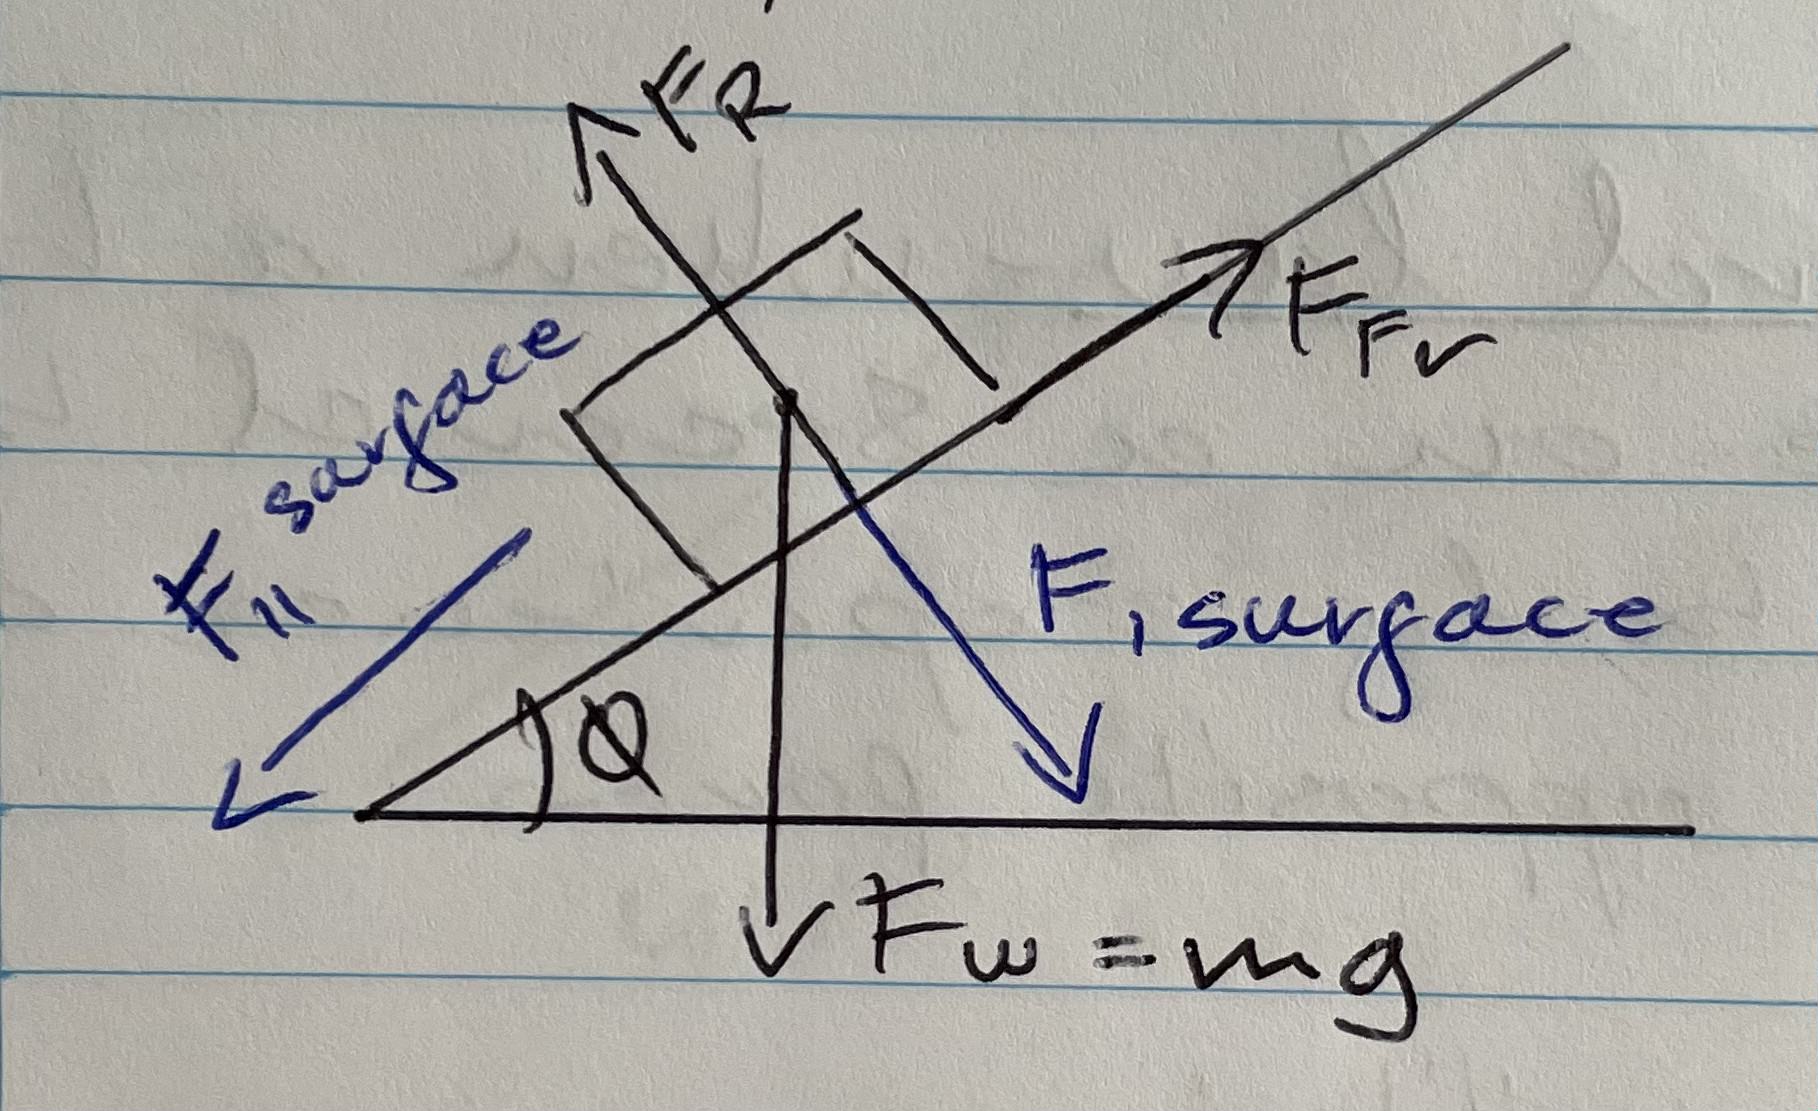 F_R
F_Fr
F_|| surface
F, surface
Φ
F_w = mg